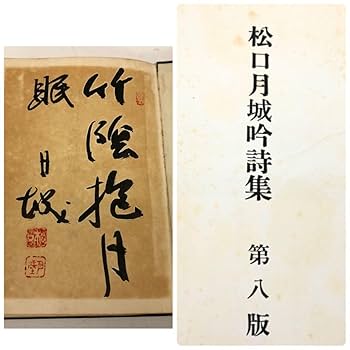 竹陰抱月
眠 月城
松口月城吟詩集 第八版